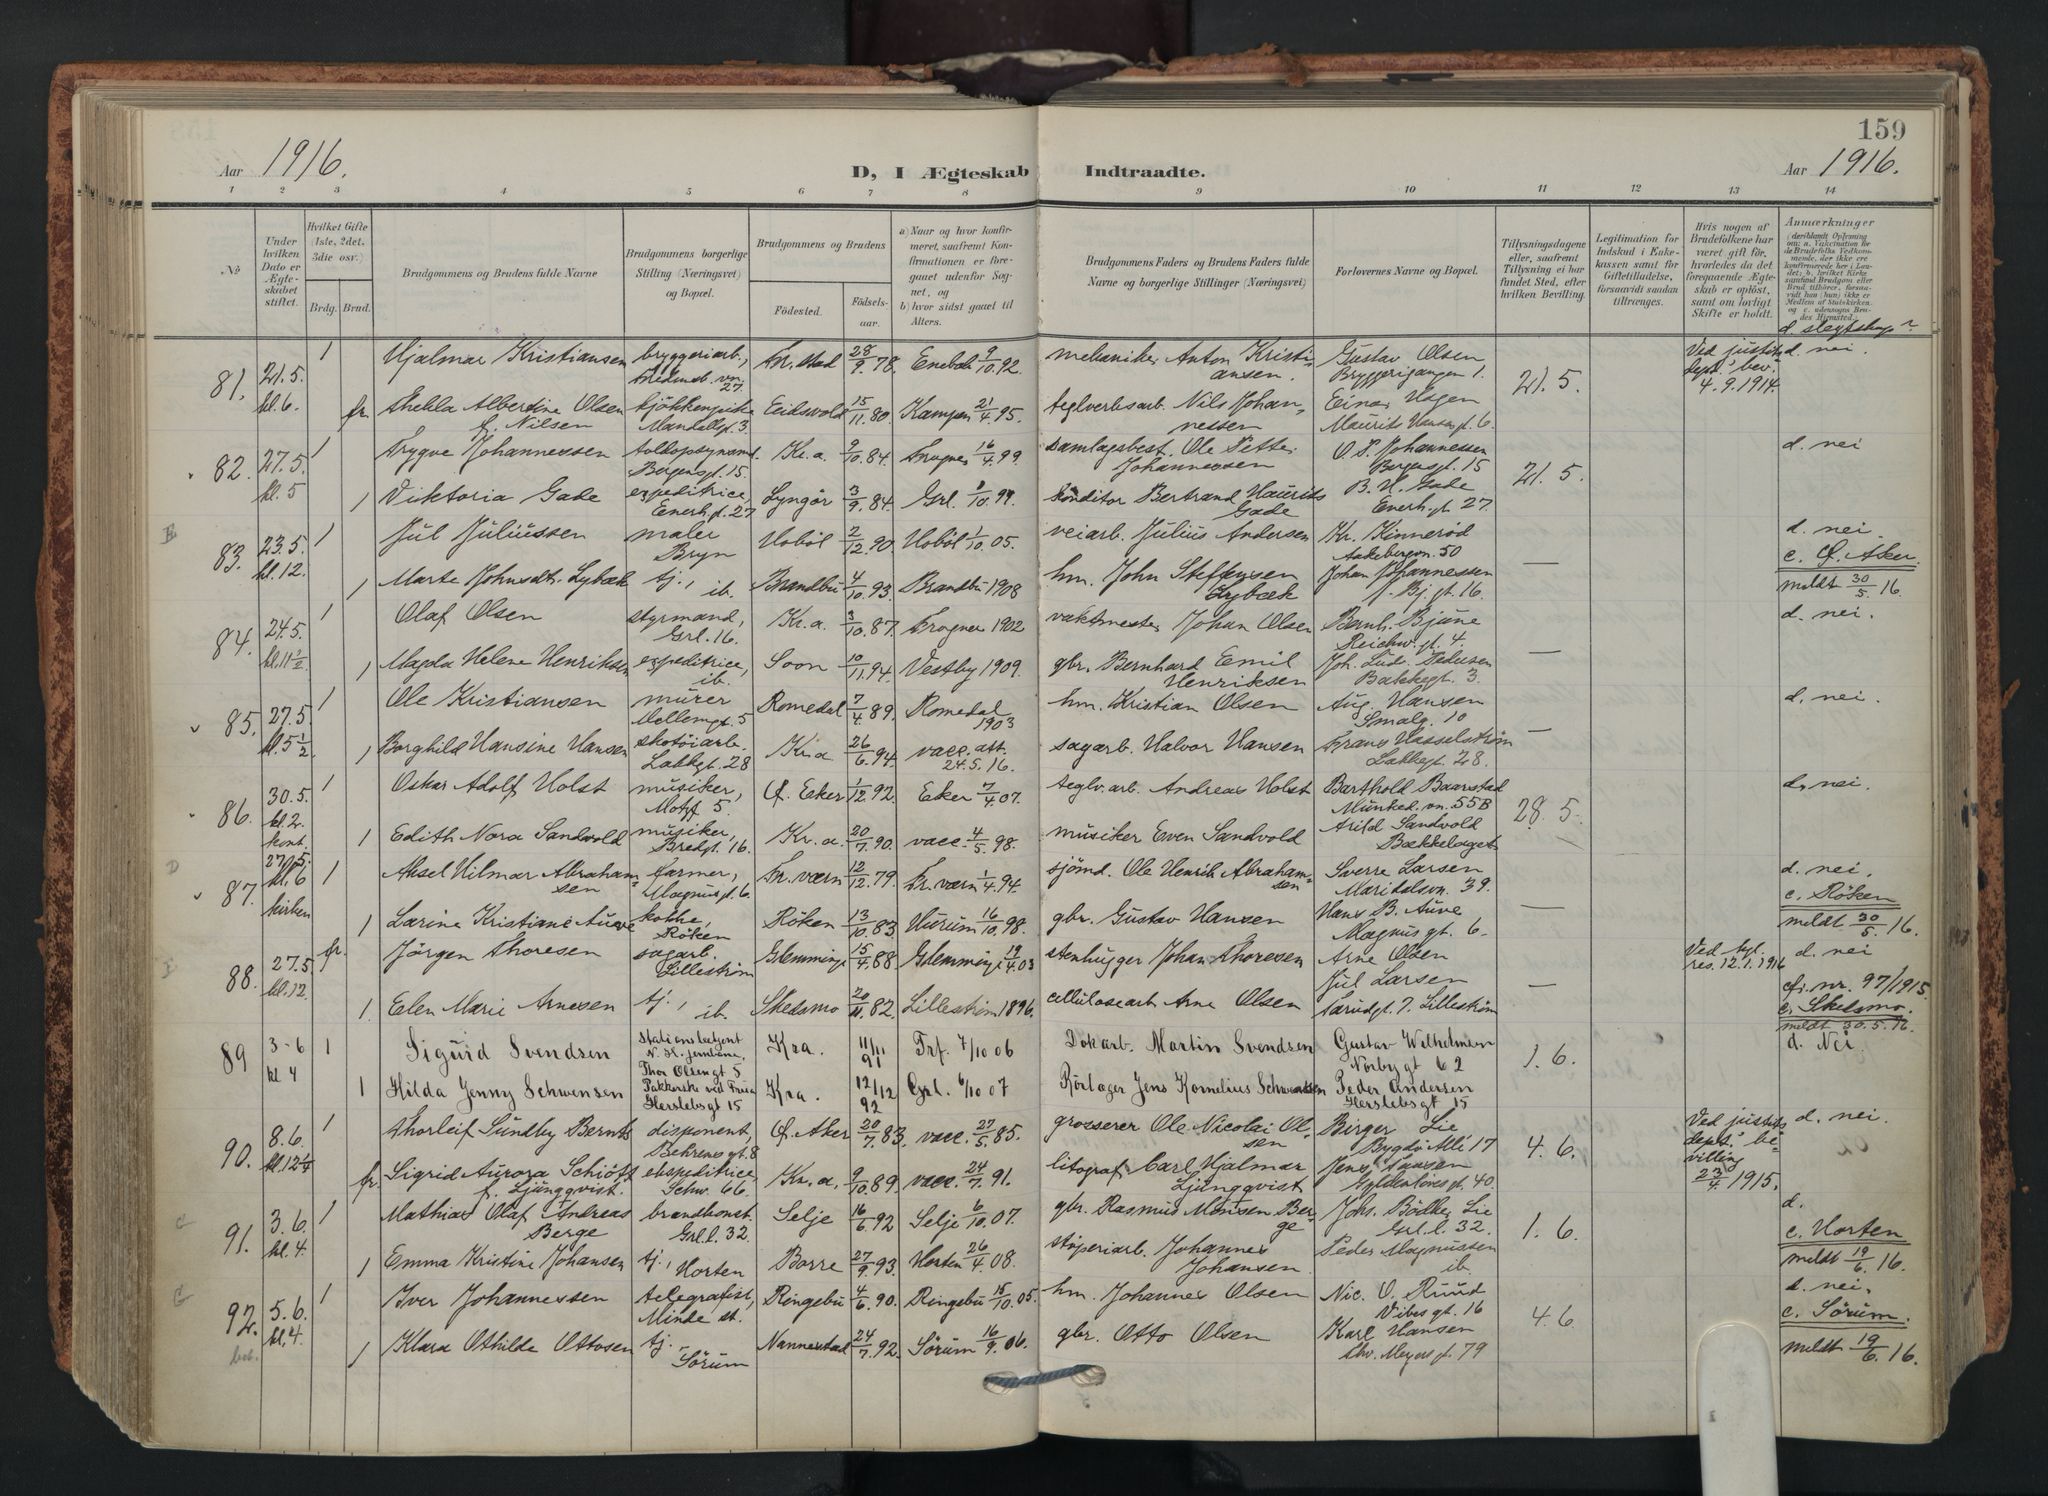 159
Aar 1916.
D, I Ægteskab Indtraadte.
Aar 1916.
1 2 3 4 5 6 7 8 9 10 11 12 13 14
No
Under hvilken Dato er Ægteskabet stiftet.
Hvilket Gifte (1ste, 2det, 3die osv.)
Brdg. Brud.
Brudgommens og Brudens fulde Navne
Brudgommens borgerlige Stilling (Næringsvei) og Bopæl.
Brudgommens og Brudens
Fødested.
Fødselsaar.
a) Naar og hvor konfirmeret, saafremt Konfirmationen er foregaaet udenfor Sognet, og
b) hvor sidst gaaet til Alters.
Brudgommens Faders og Brudens Faders fulde Navne og borgerlige Stillinger (Næringsvei)
Forlovernes Navne og Bopæl.
Tillysningsdagene eller, saafremt Tillysning ei har fundet Sted, efter hvilken Bevilling.
Legitimation for Indskud i Enkekassen samt for Giftetilladelse, forsaavidt saadan tiltrænges.
Hvis nogen af Brudefolkene har været gift før, hvorledes da det foregaaende Ægteskab er opløst, samt om lovligt Skifte er holdt.
Anmærkninger
d. slegtskap?
81. 21.5. kl. 6. 1 Hjalmar Kristiansen bryggeriarb., 27 Fr.stad 28/9 78. Enebak 9/10 92. mekaniker Anton Kristiansen. Gustav Olsen Bryggerigangen 1. 21.5. Ved justits dept.' bev. 4.9.1914. d. nei.
fr. Thekla Albertine Olsen f. Nilsen kjøkkenpike Mandallsgt. 3. Eidsvold 15/11 80. Kampen 21/4 95. teglverksarb. Nils Johannessen Einar Hagen Maurits Hansens gt. 6.
82. 27.5. kl. 5 1 Trygve Johannessen toldopsynsmd. Bergensgt. 15. Kr.a. 9/10 84. Frogner 16/4 99. samlagsbest. Ole Petter Johannessen O. P. Johannessen Bergensgt. 15 21.5. d. nei
1 Viktoria Gade expeditrice, Enerh.gt. 27 Lyngør 3/9 84. Grl. 1/10 99. konditor Bertrand Maurits Gade B. M. Gade Enerh. gt. 27.
83. 23.5. kl. 12. 1 Jul Juliussen maler Bryn Hobøl 2/12 90. Hobøl 1/10 05. veiarb. Julius Andersen Kr. Kinnerød Aakebergvn. 50 — d. nei. c. Ø. Aker.
1 Marte Johnsdt. Lybæk tj., ib. Brandbu 4/10 93. Brandbu 1908 hm. John Steffensen Lybæk Johan Johannessen J. Bj. gt. 16. meldt 30/5 16.
84. 24.5. kl. 11 1/2 1 Olaf Olsen styrmand, Grl. 16. Kr.a. 3/10 87. Frogner 1902 vaktmester Johan Olsen Bernh. Bjune Reichw. gt. 4. — d. nei.
1 Magda Helene Henriksen expeditrice, ib. Soon 10/11 94. Vestby 1909. gbr. Bernhard Emil Henriksen Joh. Lud. Pedersen Bakkegt. 3.
85. 27.5. kl. 5 1/2 1 Ole Kristiansen murer Mellemgt. 5 Romedal 7/4 89. Romedal 1903 hm. Kristian Olsen Aug. Hansen Smalg. 10 — d. nei.
1 Borghild Hansine Hansen skotøiarb. Lakkegt. 28 Kr.a 26/6 94. vacc. att. 24.5.16. sagarb. Halvor Hansen Frans Hasselstrøm Lakkegt. 28.
86. 30.5. kl. 2. kont. 1 Oskar Adolf Holst musiker, 5. Ø. Eker 1/12 92. Eker 7/4 07. teglv.arb. Andreas Holst Barthold Baarstad Munked. vn. 55B 28.5. d. nei.
1 Edith Nora Sandvold musiker, Bredgt. 16. Kr.a. 20/7 90. vacc. 4/5 98. musiker Even Sandvold Arild Sandvold Bækkelaget
87. 27.5. kl. 6 kirken 1 Aksel Hilmar Abrahamsen farmer, Magnus gt. 6. Fr. værn 12/12 79. Fr. værn 1/4 94. sjømd. Ole Henrik Abrahamsen Sverre Larsen Maridalsvn. 39. — d. nei. c. Røken
1 Larine Kristiane Auve kokke, Røken Røken 13/10 83 Hurum 16/10 98. gbr. Gustav Hansen Hans B. Auve Magnus gt. 6. meldt 30/5 16.
88. 27.5 kl. 12. fr. Jørgen Thoresen sagarb. Lillestrøm Glemminge 15/4 88. Glemminge 19/4 03 stenhugger Johan Thoresen Arne Olsen — Ved kgl. res. 12.1.1916 d. nei cfr. nr. 97/1915.
1. Elen Marie Arnesen tj., ib. Skedsmo 20/11 82. Lillestrøm 1896. cellulosearb Arne Olsen Jul Larsen 7. Lillestrøm c. Skedsmo. meldt 30.5.16.
89 3-6 kl 4 1 Sigurd Svendsen Stationsbetjent N. H. jernbane, Thor Olsengt 5 Kra. 11/11 91 Trf. 7/10 06 Dokarb. Martin Svendsen Gustav Wilhelmsen Norbygt 62 1.6. d. Nei
1 Hilda Jenny Schwensen Pakkerske ved Freia Herslebsgt 15 Kra. 12/12 92 Grl. 6/10 07 Rørlæger Jens Kornelius Schwensen Peder Andersen Herslebsgt 15
90. 8.6. kl. 12 1/4 1 Thorleif Sundby Bernts disponent, Behrens gt. 8 Ø. Aker 20/7 83. vacc. 27/5 85. grosserer Ole Nicolai Olsen Birger Lie Bygdø Alle 17 4.6. Ved justits dept.' bevilling 23/4 1915. d. nei.
fr. Sigrid Aurora Schiøtt f. Ljungqvist. ekspeditrice, Schw. 66. Kr.a. 9/10 89. vacc. 24/7 91. litograf Carl Hjalmar Ljungqvist Jens Gyldenløves gt. 40.
91. 3.6. kl. 4. 1 Mathias Olaf Andreas Berge brandkonst. Grl.l. 32 Selje 16/6 92 Selje 6/10 07. gbr. Rasmus Monsen Berge Johs. Bødker Lie Grl.l. 32. 1.6. d. c. Horten
1 Emma Kristine Johansen tj., Horten Borre 27/9 93. Horten 26/4 08. støperiarb. Johannes Johansen. Peder Magnussen ib. meldt 19/6 16.
92. bet. 5.6. kl. 4. 1 Iver Johannessen telegrafist, Minde st. Ringebu 4/6 90. Ringebu 15/10 05. hm. Johannes Olsen Nic. O. Ruud Vibes gt. 16 4.6. d. nei. c. Sørum.
1 Klara Othilde Ottosen tj. Sørum Nannestad 24/7 92. Sørum 16/9 06. gbr. Otto Olsen Karl Hansen Chr. Meyers gt. 79 meldt 19/6 16.